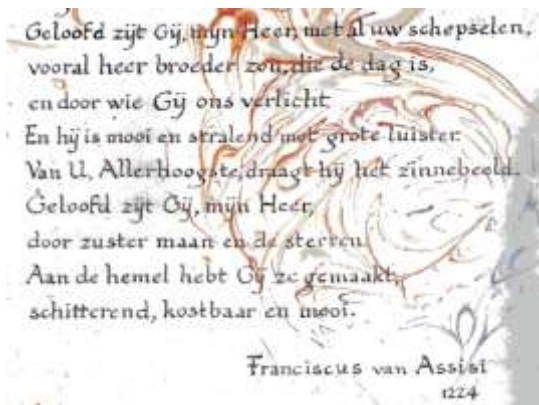 Geloofd zijt Gij, mijn Heer, met al uw schepselen,
vooral heer broeder zon, die de dag is,
en door wie Gij ons verlicht
En hij is mooi en stralend met grote luister.
Van U, Allerhoogste, draagt hij het zinnebeeld.
Geloofd zijt Gij, mijn Heer,
door zuster maan en de sterren.
Aan de hemel hebt Gij ze gemaakt,
schitterend, kostbaar en mooi.
Franciscus van Assisi
1224